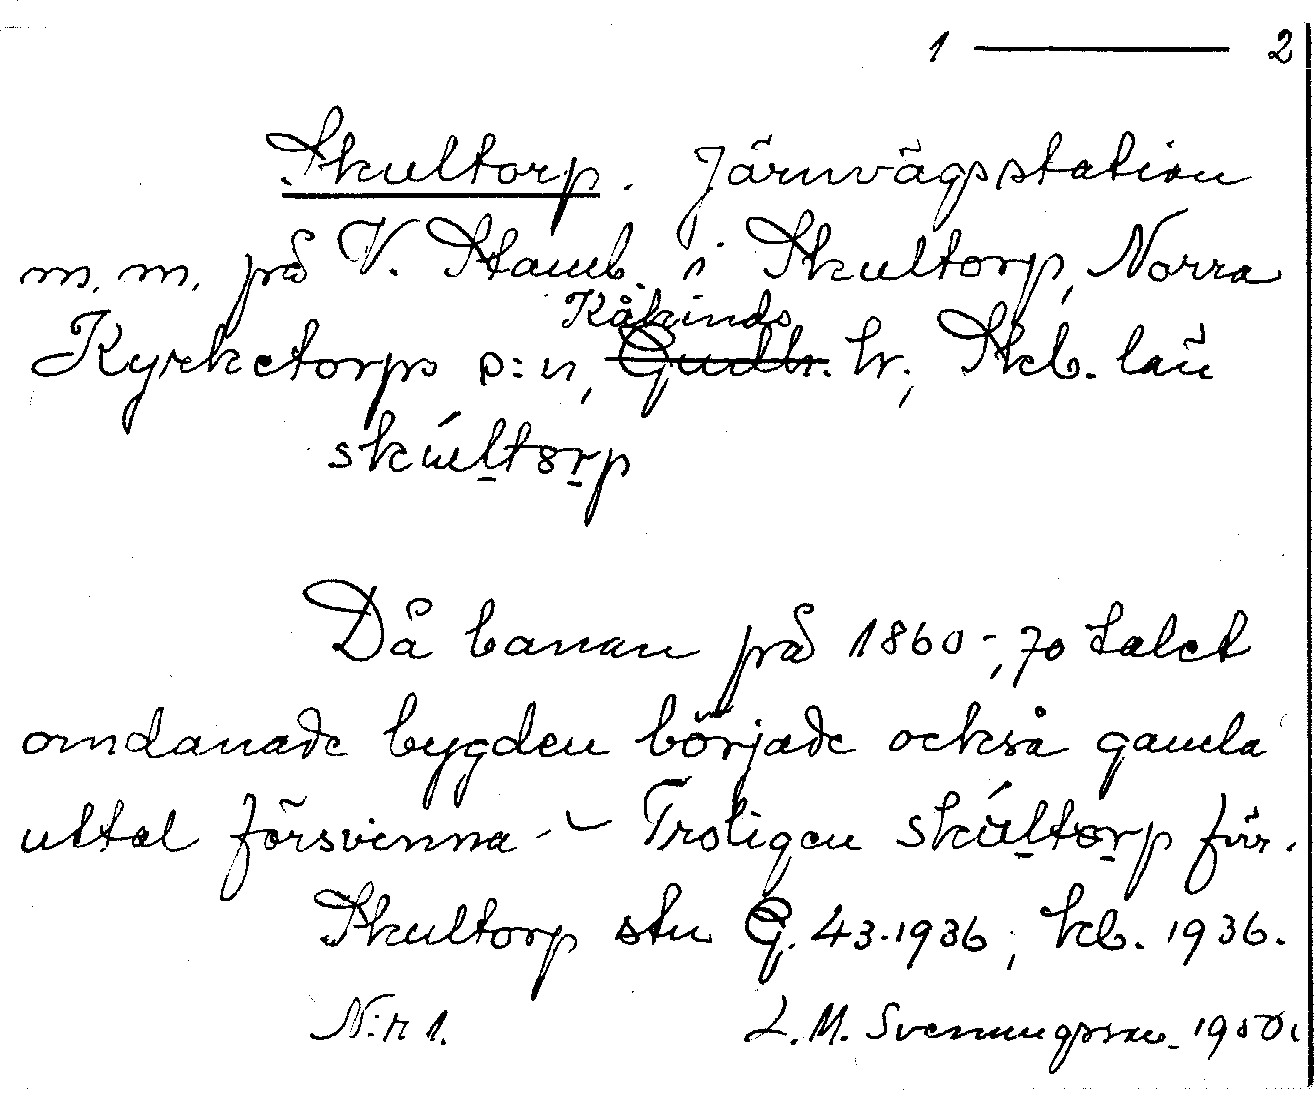 1 ——— 2
Skultorp. Järnvägsstation
m. m. på V. Stamb. i Skultorp, Norra
Kåkinds
Kyrketorps s:n, Gudh. hr., Skb. län
skúltorp
Då banan på 1860-, 70 talet
omdanade bygden började också gamla
uttal försvinna -- Troligen skúltorp förr.
Skultorp stn G. 43.1936; kb. 1936.
N:r 1. L. M. Svenungsson 1950.